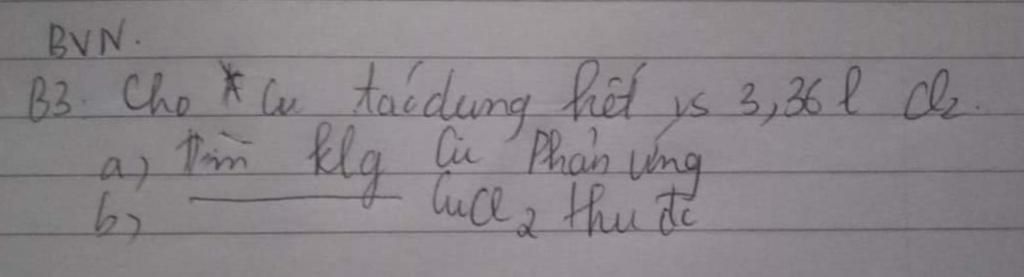 BVN.
B3. Cho Cu tác dụng hết vs 3,36 l Cl2.
a) Tìm klg Cu Phản ứng
b) ——— CuCl2 thu đc